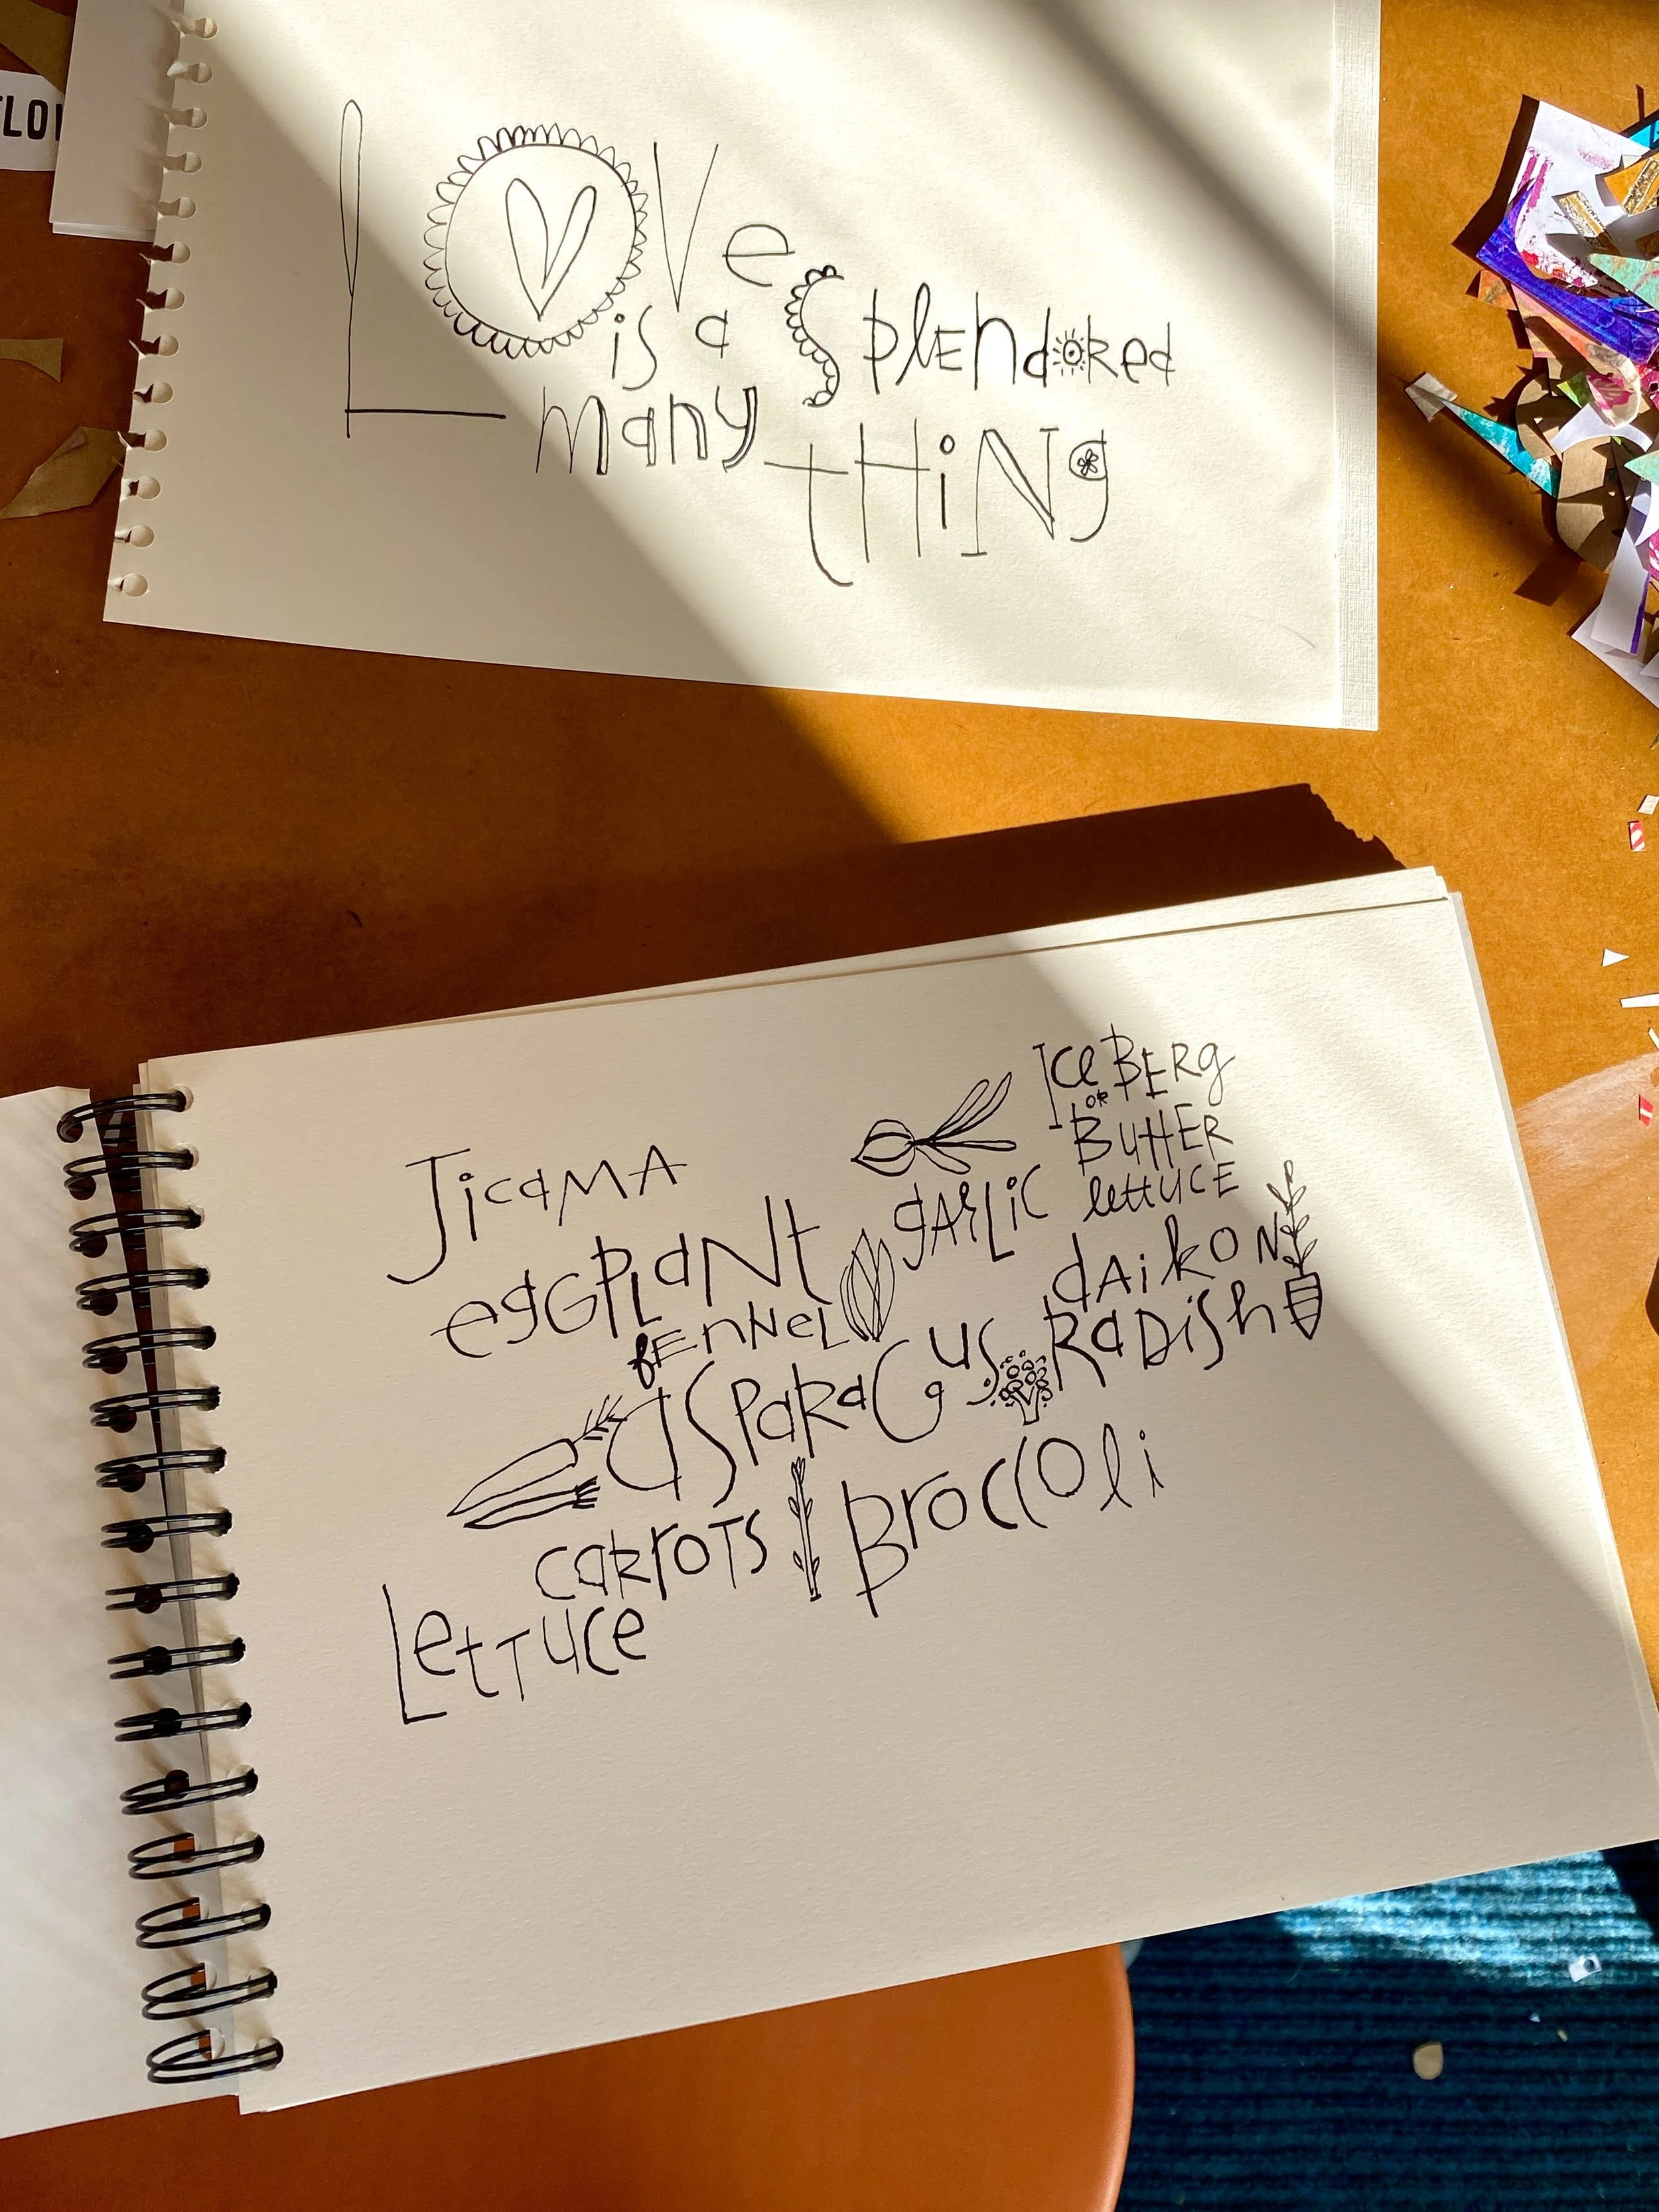 FLO
LOVe
is a SplENdoRed
many tHiNg
JicaMA
eggPlaNt
fENNeL
asparaGus
carroTs
Broccoli
LettuCe
garLic
IceBERg
OR
ButtER
lettuCE
dAikoN
RaDish